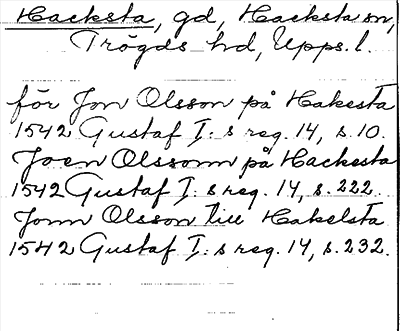 Hacksta, gd, Hacksta sn,
Trögds hd, Upps. l.
för Jon Olsson på Hakesta
1542 Gustaf I:s reg. 14, s. 10.
Joen Olssonn på Hackesta
1542 Gustaf I:s reg. 14, s. 222.
Jonn Olsson till Hakelsta
1542 Gustaf I:s reg. 14, s. 232.